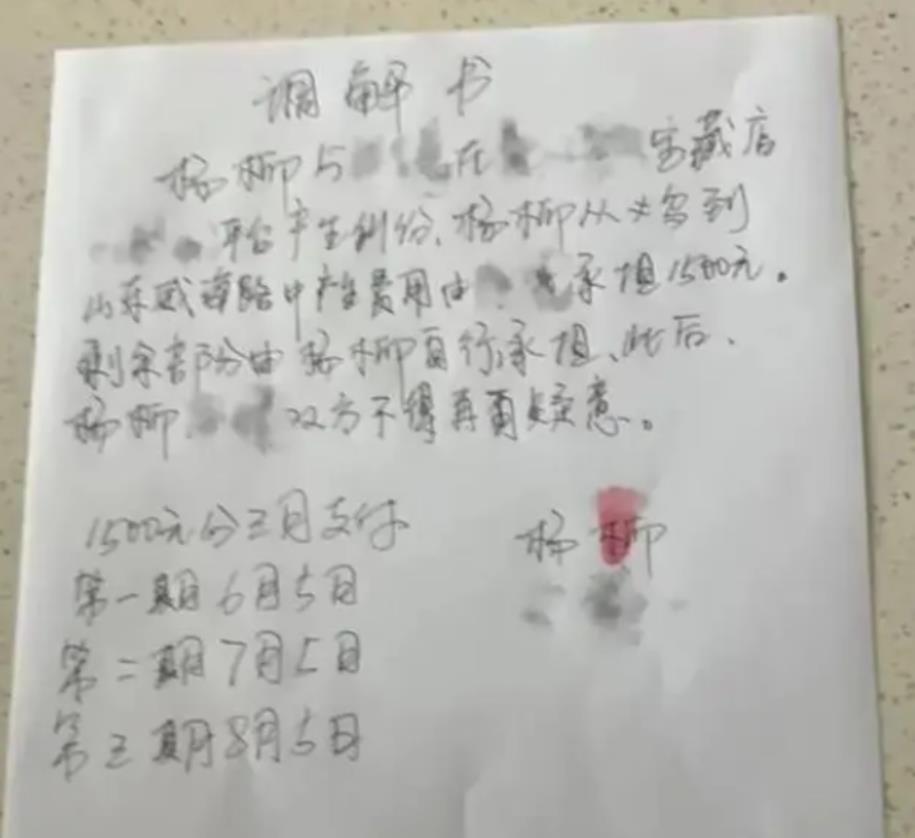 调解书
杨柳与 在 宝藏店
平台产生纠纷、杨柳从 到
山东威海路中产生费用由 承担1500元。
剩余部分由杨柳自行承担、此后、
杨柳、 双方不得再有疑意。
1500元分三月支付
杨柳
第一期6月5日
第二期7月5日
第三期8月5日